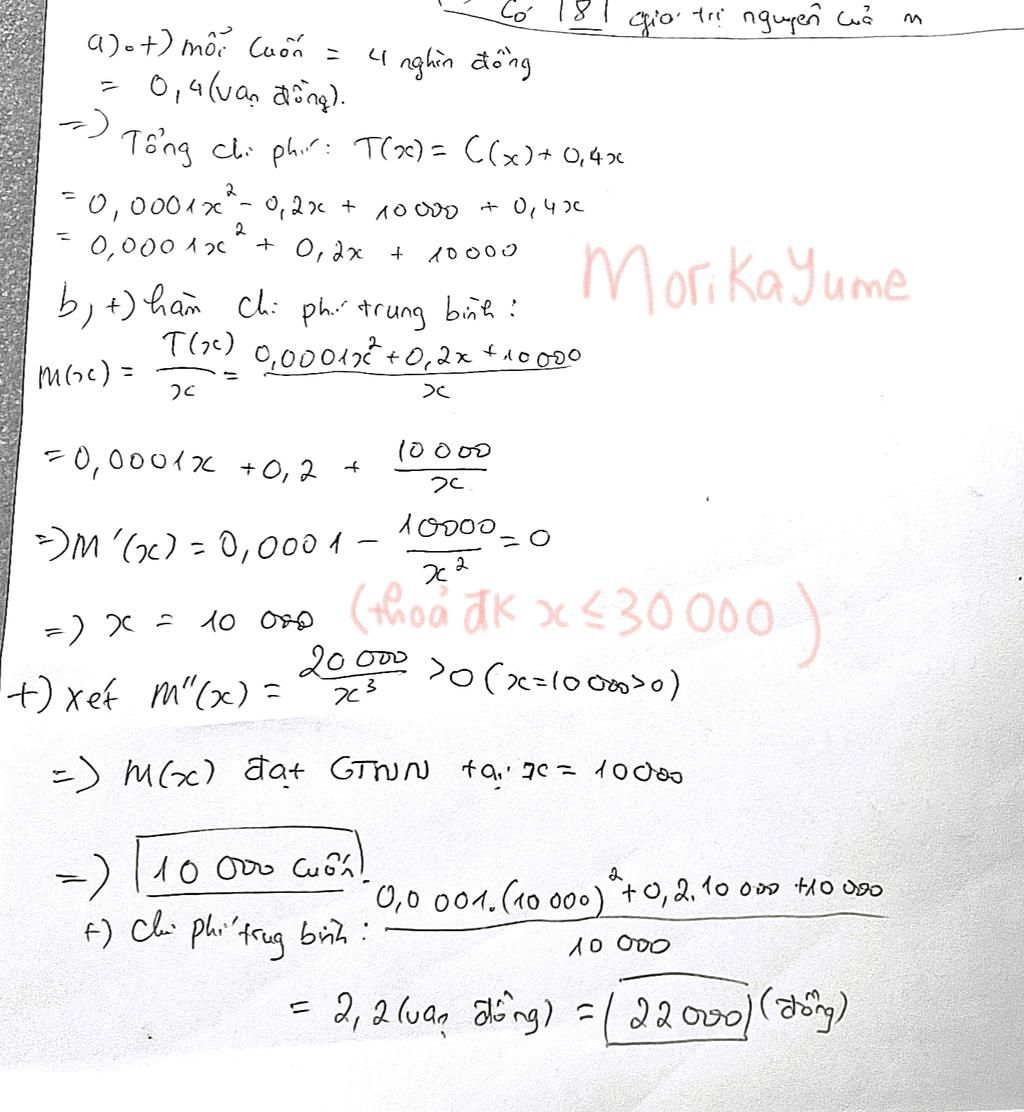 Có |8| giá trị nguyên của m
a) +) mỗi cuốn = 4 nghìn đồng
= 0,4 (vạn đồng).
=> Tổng chi phí: T(x) = C(x) + 0,4x
= 0,0001x² - 0,2x + 10000 + 0,4x
= 0,0001x² + 0,2x + 10000
MoriKaYume
b, +) hàm chi phí trung bình:
M(x) = T(x)/x = (0,0001x² + 0,2x + 10000)/x
= 0,0001x + 0,2 + 10000/x
=> M'(x) = 0,0001 - 10000/x² = 0
=> x = 10 000 (thoả đk x ≤ 30 000)
+) xét M''(x) = 20 000/x³ > 0 (x = 10 000 > 0)
=> M(x) đạt GTNN tại x = 10000
=> 10 000 cuốn.
+) Chi phí trug bình: (0,0001.(10 000)² + 0,2.10 000 + 10 000)/10 000
= 2,2 (vạn đồng) = 22 000 (đồng)